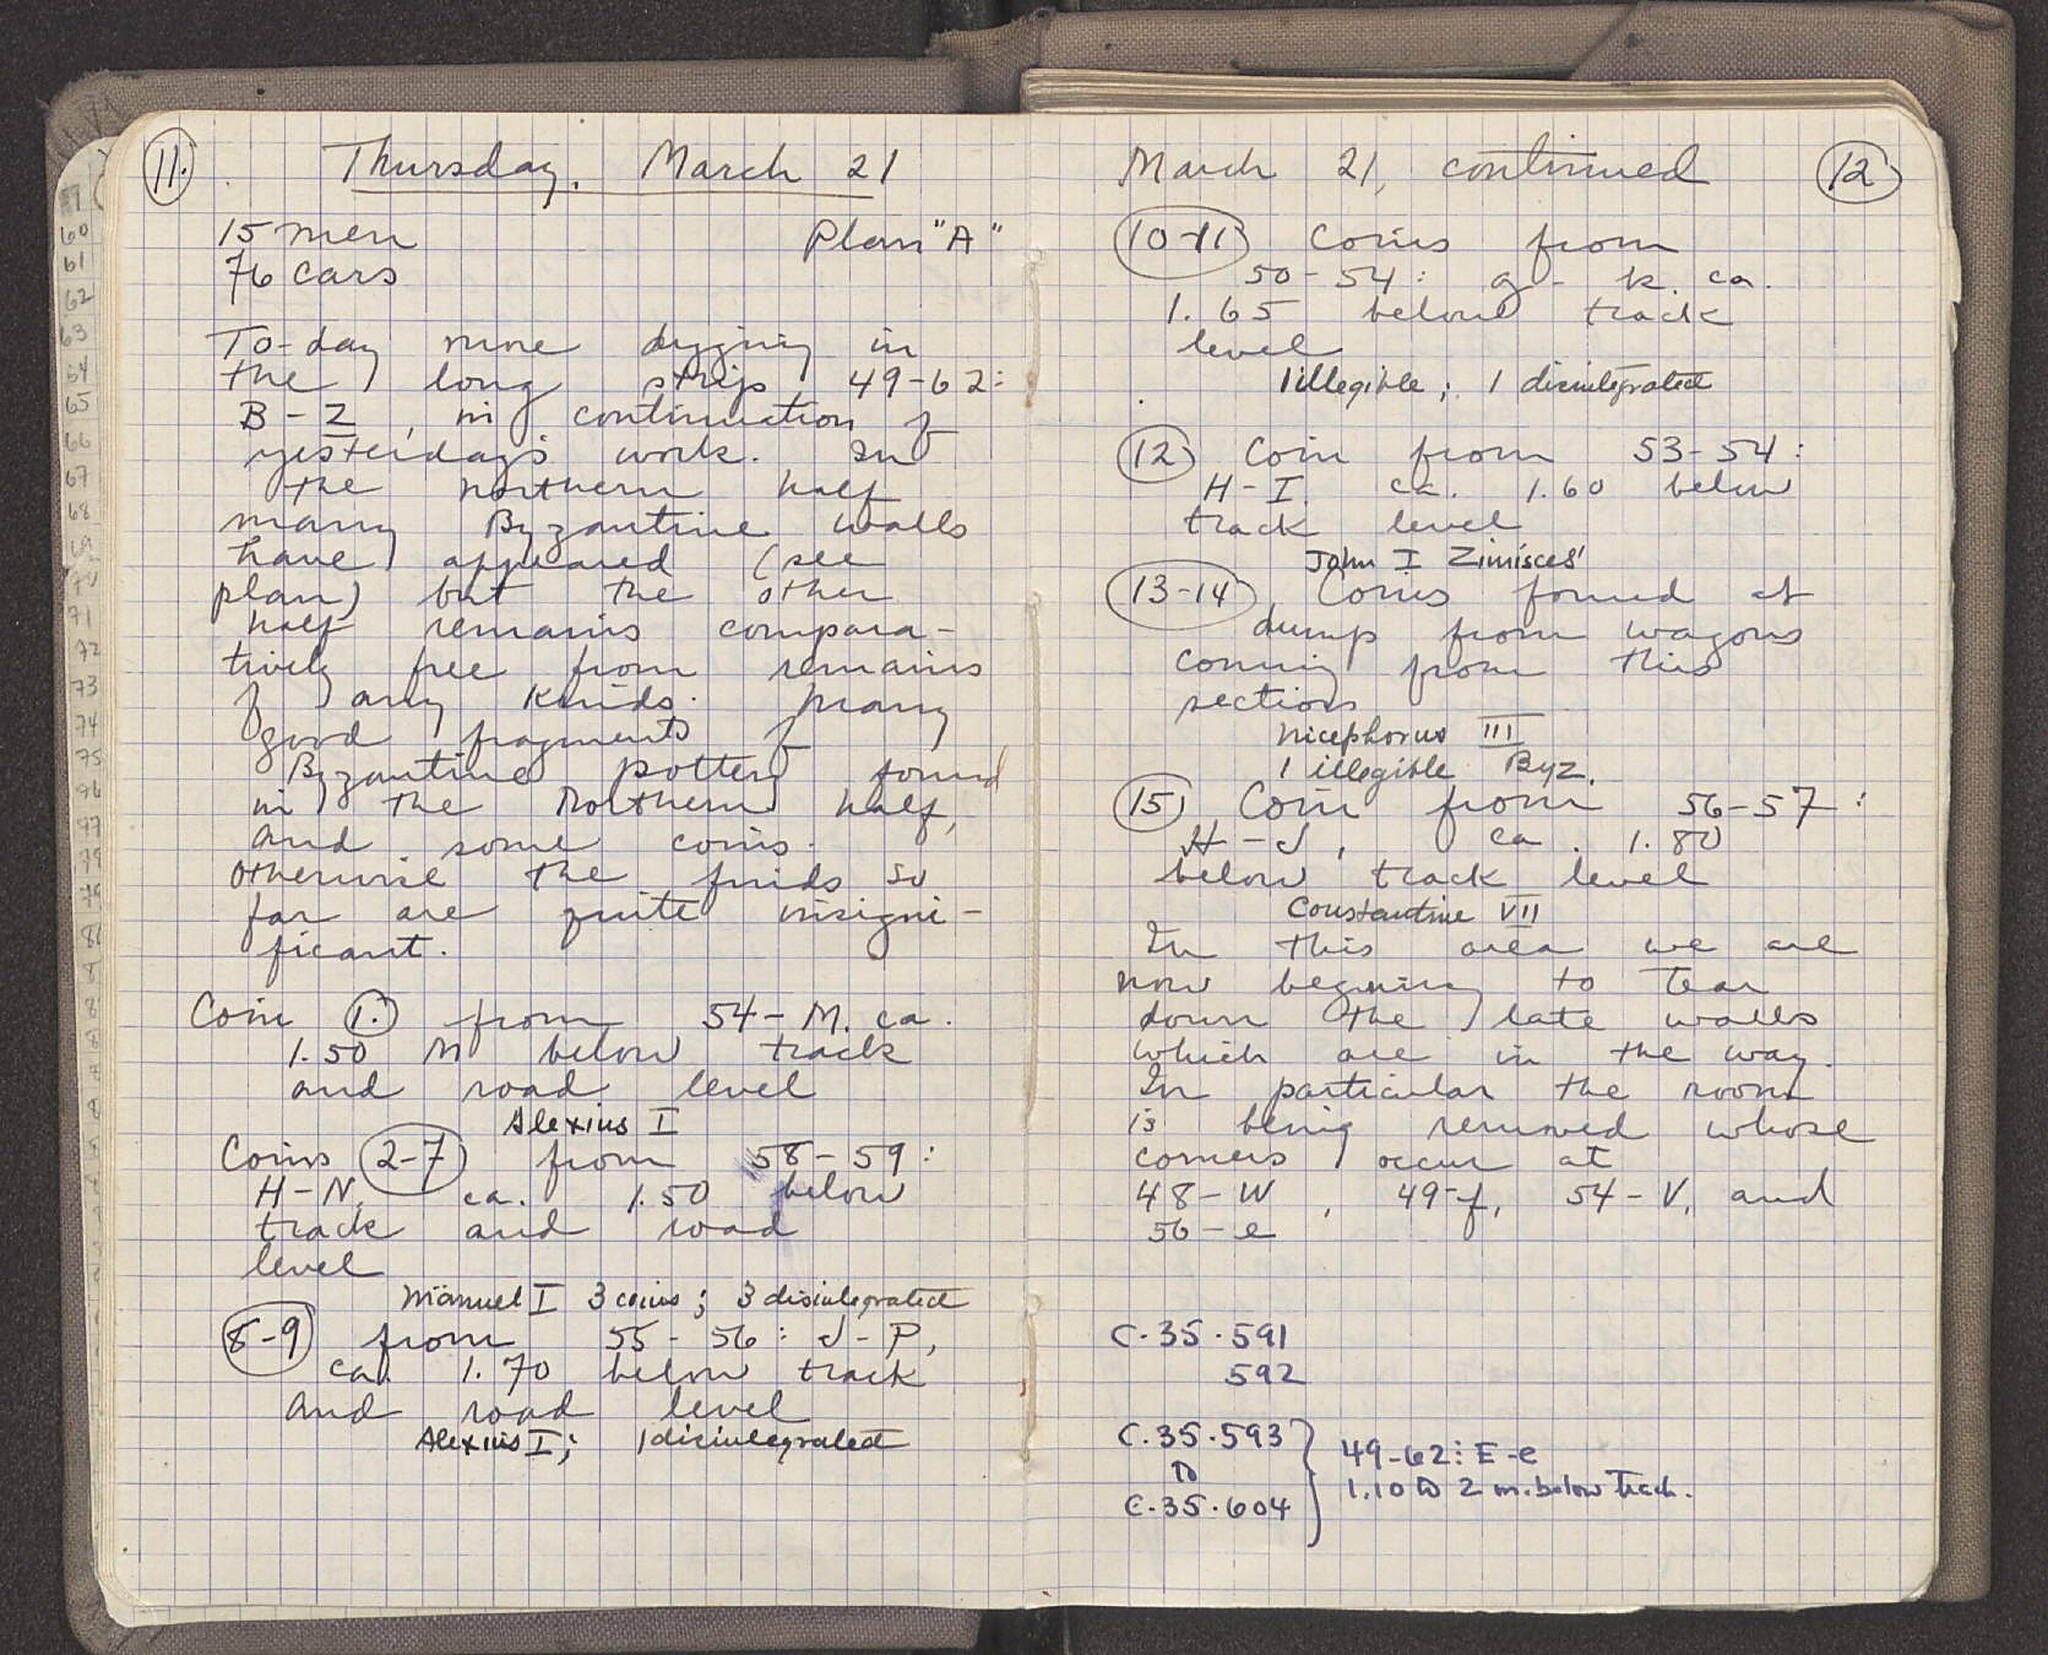 11.
Thursday, March 21
15 men Plan "A"
76 cars
To-day more digging in
the long strip 49-62:
B-Z, in continuation of
yesterday's work. In
the northern half
many Byzantine walls
have appeared (see
plan) but the other
half remains compara-
tively free from remains
of any kinds. Many
good fragments of
Byzantine pottery found
in the Northern half,
and some coins.
Otherwise the finds so
far are quite insigni-
ficant.
Coin 1. from 54-M. ca.
1.50 M below track
and road level
Alexius I
Coins 2-7 from 58-59:
H-N, ca. 1.50 below
track and road
level
Manuel I 3 coins; 3 disintegrated
8-9 from 55-56: J-P,
ca. 1.70 below track
and road level
Alexius I; 1 disintegrated
March 21, continued 12
10-11 Coins from
50-54: g-k. ca.
1.65 below track
level
1 illegible; 1 disintegrated
12 Coin from 53-54:
H-I. ca. 1.60 below
track level
John I Zimisces
13-14 Coins found at
dump from wagons
coming from this
section
Nicephorus III
1 illegible Byz.
15 Coin from 56-57:
H-J, ca. 1.80
below track level
Constantine VII
In this area we are
now begining to tear
down the late walls
which are in the way.
In particular the room
is being removed whose
corners occur at
48-W, 49-f, 54-V, and
56-e
C.35.591
592
C.35.593
to
C.35.604
49-62: E-e
1.10 to 2 m. below track.
60
61
62
63
64
65
66
67
68
69
70
71
72
73
74
75